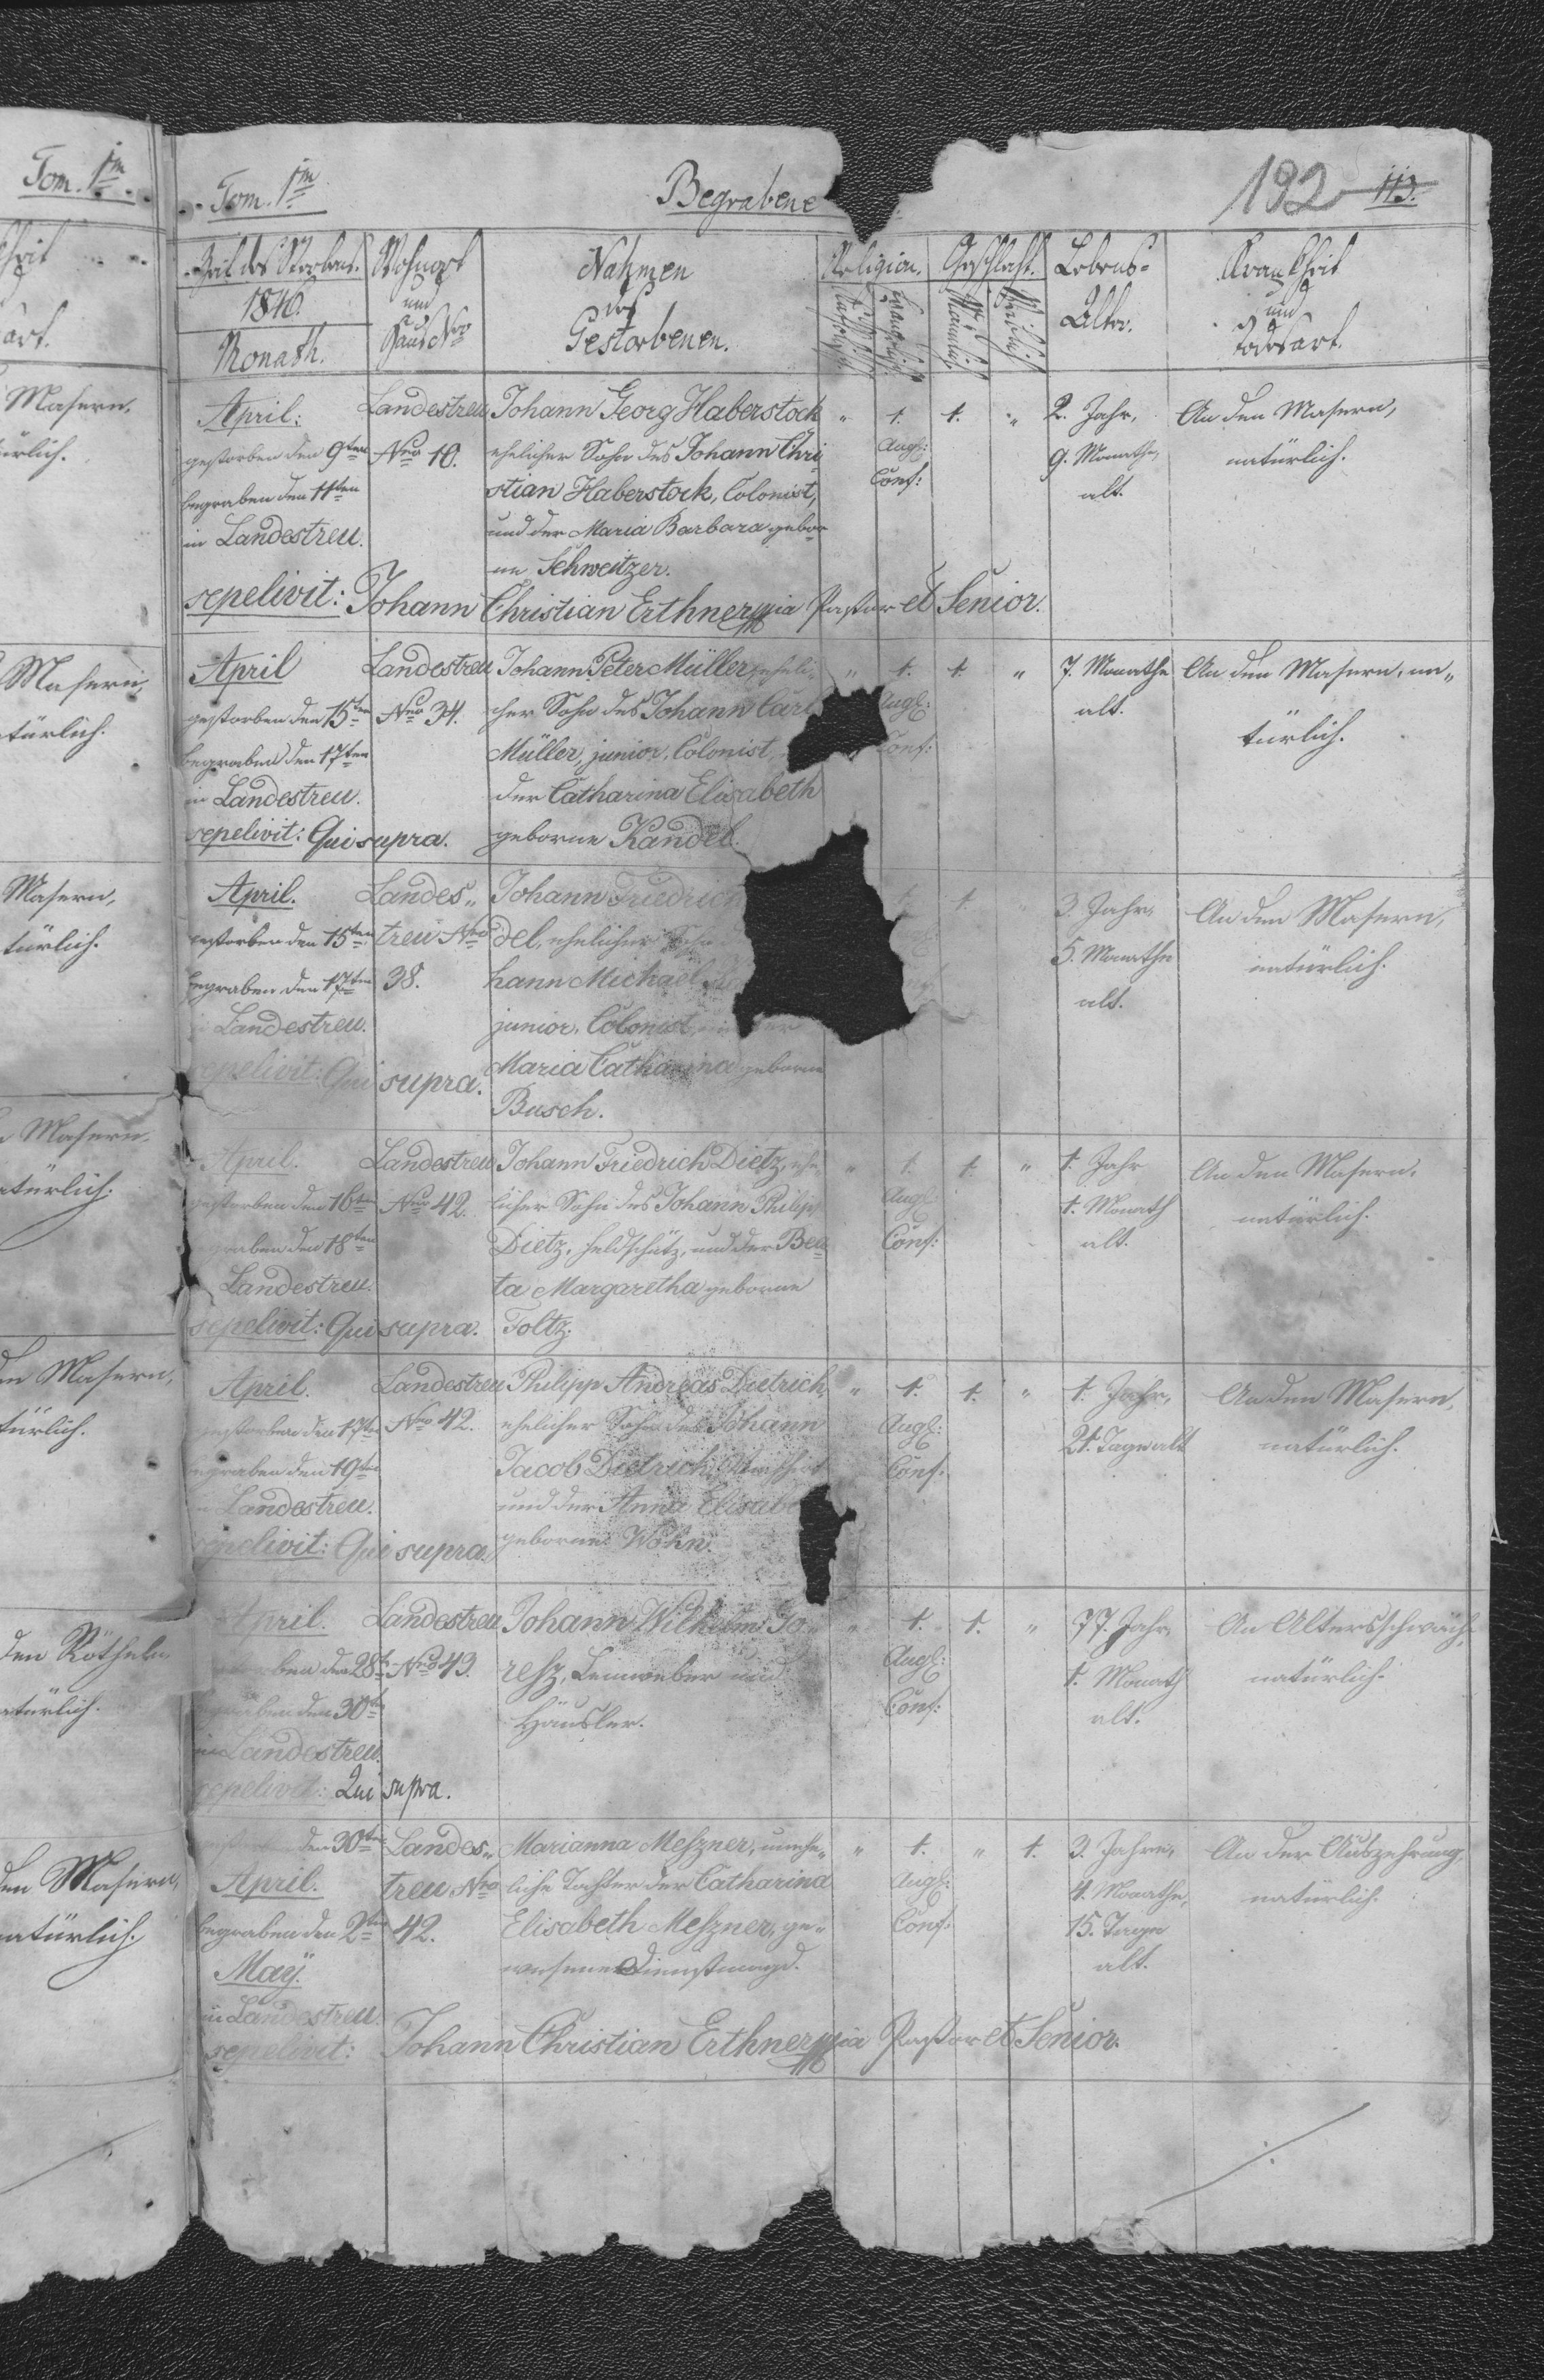 Tom. 1m
Masern,
türlich.
Masern,
türlich.
Masern,
türlich.
Masern.
türlich.
Masern,
türlich.
den Rötheln
türlich.
den Masern,
natürlich.
Tom. 1m
Begrabene
192 113.
Zeit des Sterbens.
1840.
Monath.
Wohnort
und
Haus Nro
Nahmen
der
Gestorbenen.
Religion.
Katholisch
Evangelisch
Geschlecht.
Männlich
Weiblich
Lebens-
Alter.
Krankheit
und
Todesart.
April: Landestreu Johann Georg Haberstock " 1. 1. " 2. Jahr, An den Masern,
gestorben den 9ten Nro 10. ehelicher Sohn des Johann Chri Augs: 9. Monathe, natürlich.
begraben den 11ten stian Haberstock, Colonist, Conf: alt.
in Landestreu. und der Maria Barbara gebor
ne Schweitzer.
sepelivit: Johann Christian Erthner mpia Pastor et Senior.
April Landestreu Johann Peter Müller, eheli- " 1. 1. " 7. Monathe An den Masern, na„
gestorben den 15ten Nro 34. cher Sohn des Johann Carl Augs: alt. türlich.
begraben den 17ten Müller, junior, Colonist, Conf:
in Landestreu. der Catharina Elisabeth
sepelivit: Qui supra. geborne Kandel.
April. Landes„ Johann Friedrich 1. 1. " 3. Jahr, An den Masern,
gestorben den 15ten treu Nro del, ehelicher Sohn 5. Monathe natürlich.
begraben den 17ten 38. hann Michael alt.
in Landestreu. junior, Colonist, und der
sepelivit: Qui supra. Maria Catharina geborne
Busch.
April. Landestreu Johann Friedrich Dietz, ehe„ " 1. 1. " 1. Jahr An den Masern,
gestorben den 16ten Nro 42. licher Sohn des Johann Philipp Augs: 1. Monath natürlich.
graben den 18ten Dietz, Feldschütz, und der Bea Conf: alt.
Landestreu. ta Margaretha geborne
sepelivit: Qui supra. Foltz.
April. Landestreu Philipp Andreas Dietrich, " 1. 1. " 1. Jahr, An den Masern,
gestorben den 17ten Nro 42. ehelicher Sohn des Johann Augs: 21. Tage alt natürlich.
begraben den 19ten Jacob Dietrich, Conf:
in Landestreu. und der Anna Elisabe
sepelivit: Qui supra. geborne Wohn.
April. Landestreu Johann Wilhelm Jo „ " 1. 1. " 77. Jahr, An Altersschwäche,
storben den 28ten Nro 43. resz, Leinweber und Augs: 1. Monath natürlich.
graben den 30ten Häusler. Conf: alt.
in Landestreu.
sepelivit: Qui supra.
gestorben den 30ten Landes„ Marianna Meszner, unehe„ " 1. " 1. 3. Jahre, An der Auszehrung,
April. treu Nro liche Tochter der Catharina Augs: 4. Monathe, natürlich.
begraben den 2ten 42. Elisabeth Meszner, ge„ Conf: 15. Tage
May. wesener Dienstmagd. alt.
in Landestreu.
sepelivit: Johann Christian Erthner mpia Pastor et Senior.